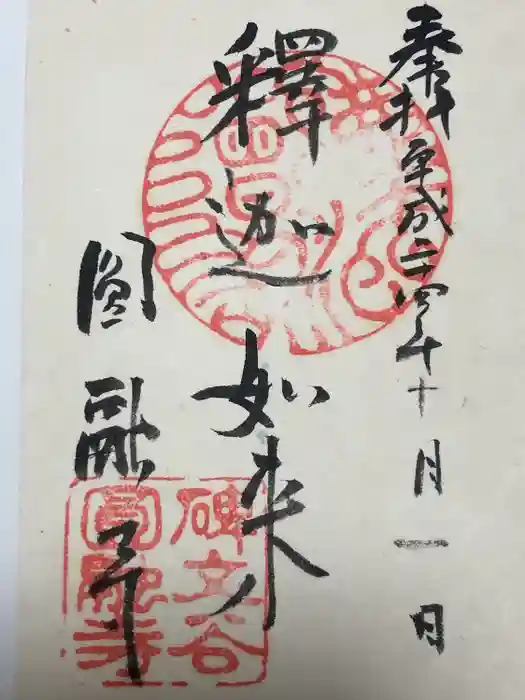 奉拝 平成二十四年十月一日
釋迦如来
圓融寺
碑文谷
圓融寺